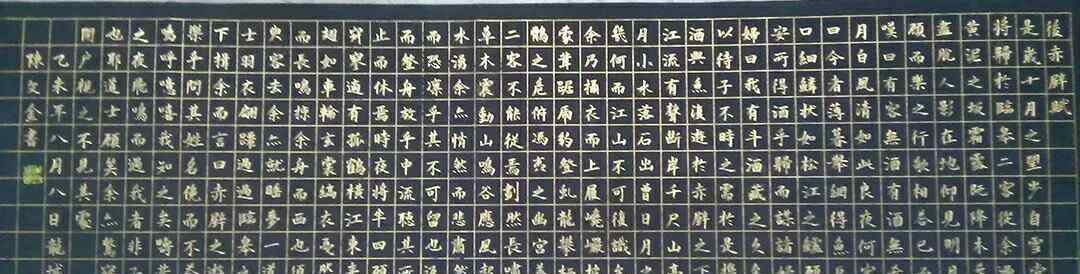 後赤壁賦
是歲十月之望步自雪
將歸於臨皋二客從余
黃泥之坂霜露既降木
盡脫人影在地仰見明
顧而樂之行歌相答已
嘆曰有客無酒有酒無
月白風清如此良夜何
曰今者薄暮舉網得魚
口細鱗狀如松江之鱸
安所得酒乎歸而謀諸
婦曰我有斗酒藏之久
以待子不時之需於是
酒與魚復遊於赤壁之
江流有聲斷岸千尺山
月小水落石出曾日月
幾何而江山不可復識
余乃攝衣而上履巉巖
蒙茸踞虎豹登虬龍攀
鶻之危俯馮夷之幽宮
二客不能從焉劃然長
草木震動山鳴谷應風
水湧余亦悄然而悲肅
而恐凜乎其不可留也
而登舟放乎中流聽其
止而休焉時夜將半四
寂寥適有孤鶴橫江東
翅如車輪玄裳縞衣戛
而長鳴掠余舟而西也
臾客去余亦就睡夢一
士羽衣翩躚過臨皋之
下揖余而言曰赤壁之
樂乎問其姓名俛而不
嗚呼噫嘻我知之矣疇
之夜飛鳴而過我者非
也耶道士顧笑余亦驚
開戶視之不見其處
乙未年八月八日龍城
陳文金書